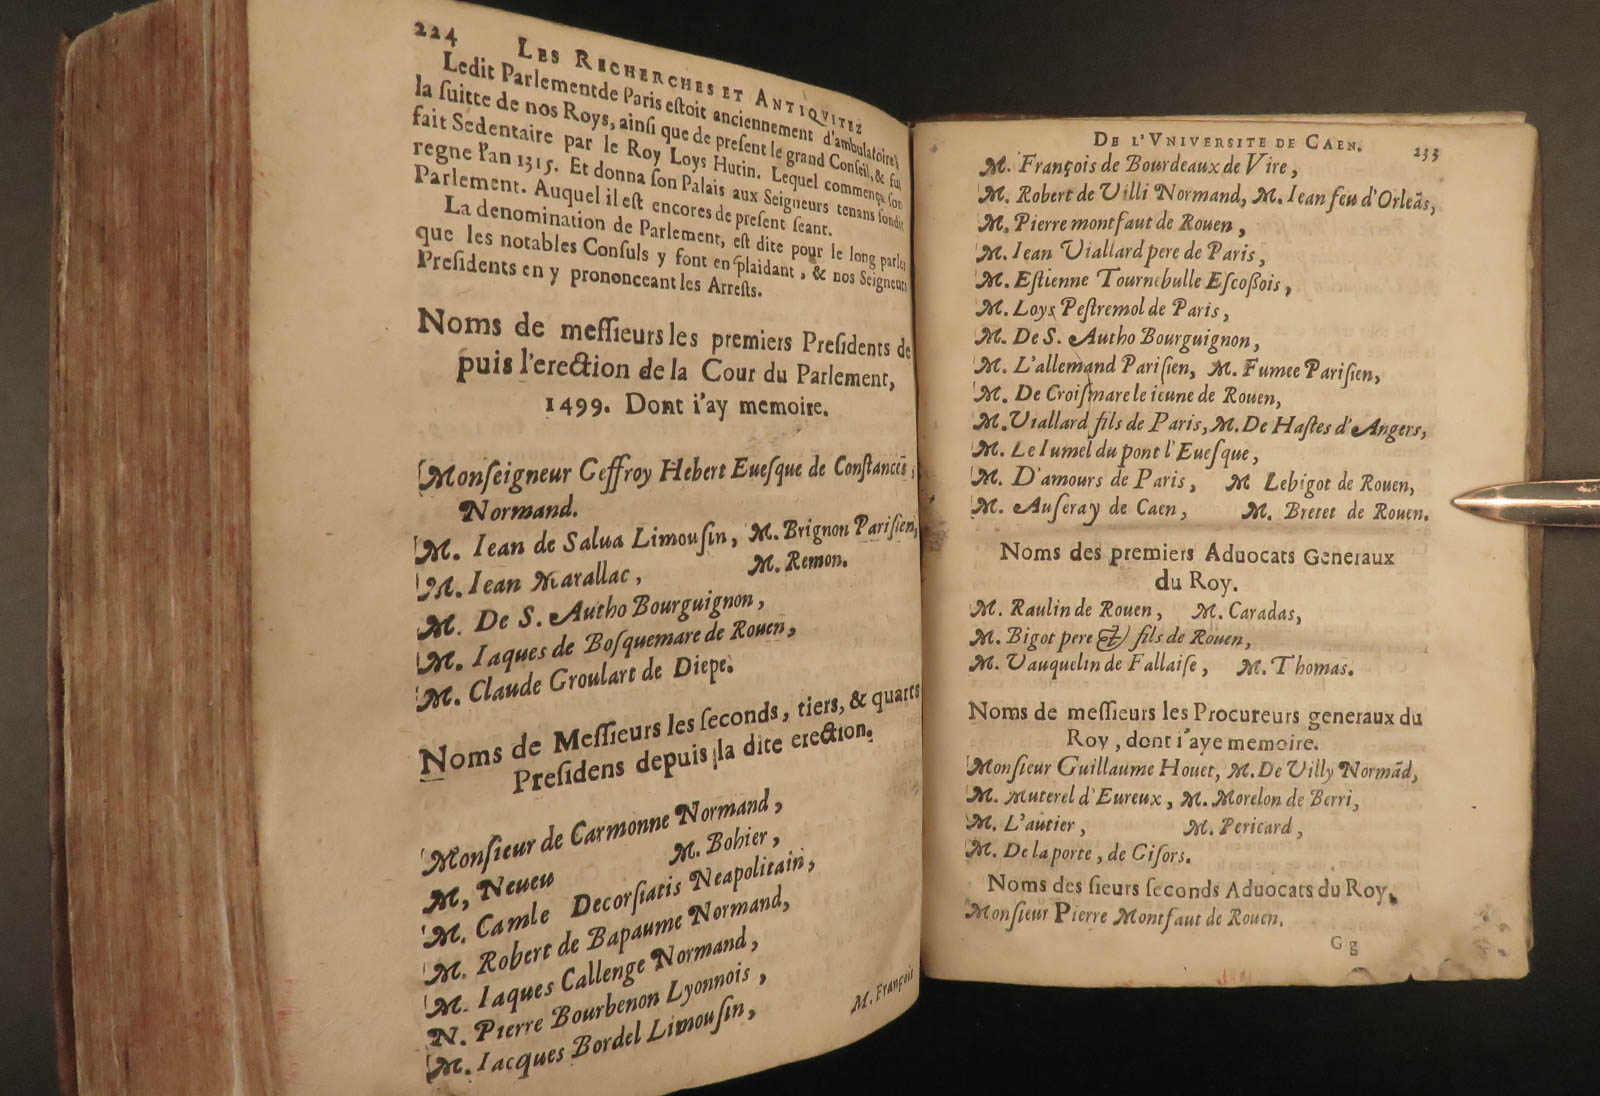 224 LES RECHERCHES ET ANTIQVITEZ
Ledit Parlement de Paris eſtoit anciennement d'ambulatoire
la ſuitte de nos Roys, ainſi que de preſent le grand Conſeil, & fut
fait Sedentaire par le Roy Loys Hutin. Lequel commença ſon
regne l'an 1315. Et donna ſon Palais aux Seigneurs tenans ſondit
Parlement. Auquel il eſt encores de preſent ſeant.
La denomination de Parlement, eſt dite pour le long parler
que les notables Conſuls y font en plaidant, & nos Seigneurs
Preſidents en y prononceant les Arreſts.
Noms de meſſieurs les premiers Preſidents de
puis l'erection de la Cour du Parlement,
1499. Dont i'ay memoire.
Monſeigneur Geffroy Hebert Eueſque de Conſtances,
Normand.
M. Iean de Salua Limouſin, M. Brignon Pariſien,
M. Iean Marallac, M. Remon.
M. De S. Autho Bourguignon,
M. Iaques de Boſquemare de Rouen,
M. Claude Groulart de Diepe.
Noms de Meſſieurs les ſeconds, tiers, & quarts
Preſidens depuis la dite erection.
Monſieur de Carmonne Normand,
M, Neueu M. Bohier,
M. Camle Decorſiatis Neapolitain,
M. Robert de Bapaume Normand,
M. Iaques Callenge Normand,
N. Pierre Bourbenon Lyonnois,
M. Iacques Bordel Limouſin,
M. François
DE L'VNIVERSITE DE CAEN. 233
M. François de Bourdeaux de Vire,
M. Robert de Villi Normand, M. Iean feu d'Orleãs,
M. Pierre montfaut de Rouen,
M. Iean Viallard pere de Paris,
M. Eſtienne Tournebulle Eſcoſſois,
M. Loys Peſtremol de Paris,
M. De S. Autho Bourguignon,
M. L'allemand Pariſien, M. Fumee Pariſien,
M. De Croiſmare le ieune de Rouen,
M. Viallard fils de Paris, M. De Haſtes d'Angers,
M. Le Iumel du pont l'Eueſque,
M. D'amours de Paris, M Lebigot de Rouen,
M. Auſeray de Caen, M. Bretet de Rouen.
Noms des premiers Aduocats Generaux
du Roy.
M. Raulin de Rouen, M. Caradas,
M. Bigot pere & fils de Rouen,
M. Vauquelin de Fallaiſe, M. Thomas.
Noms de meſſieurs les Procureurs generaux du
Roy, dont i'aye memoire.
Monſieur Guillaume Houet, M. De Villy Normãd,
M. Muterel d'Eureux, M. Morelon de Berri,
M. L'autier, M. Pericard,
M. De la porte, de Giſors.
Noms des ſieurs ſeconds Aduocats du Roy.
Monſieur Pierre Montfaut de Rouen.
G g